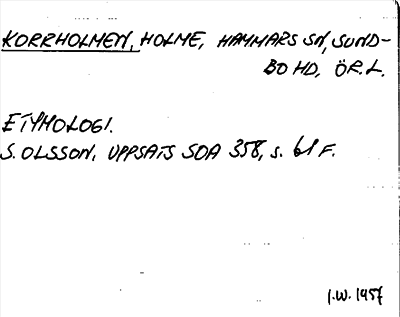 KORRHOLMEN, HOLME, HAMMARS SN, SUND-
BO HD, ÖR.L.
ETYMOLOGI.
S. OLSSON, UPPSATS SOA 358, s. 61 F.
I.W. 1957